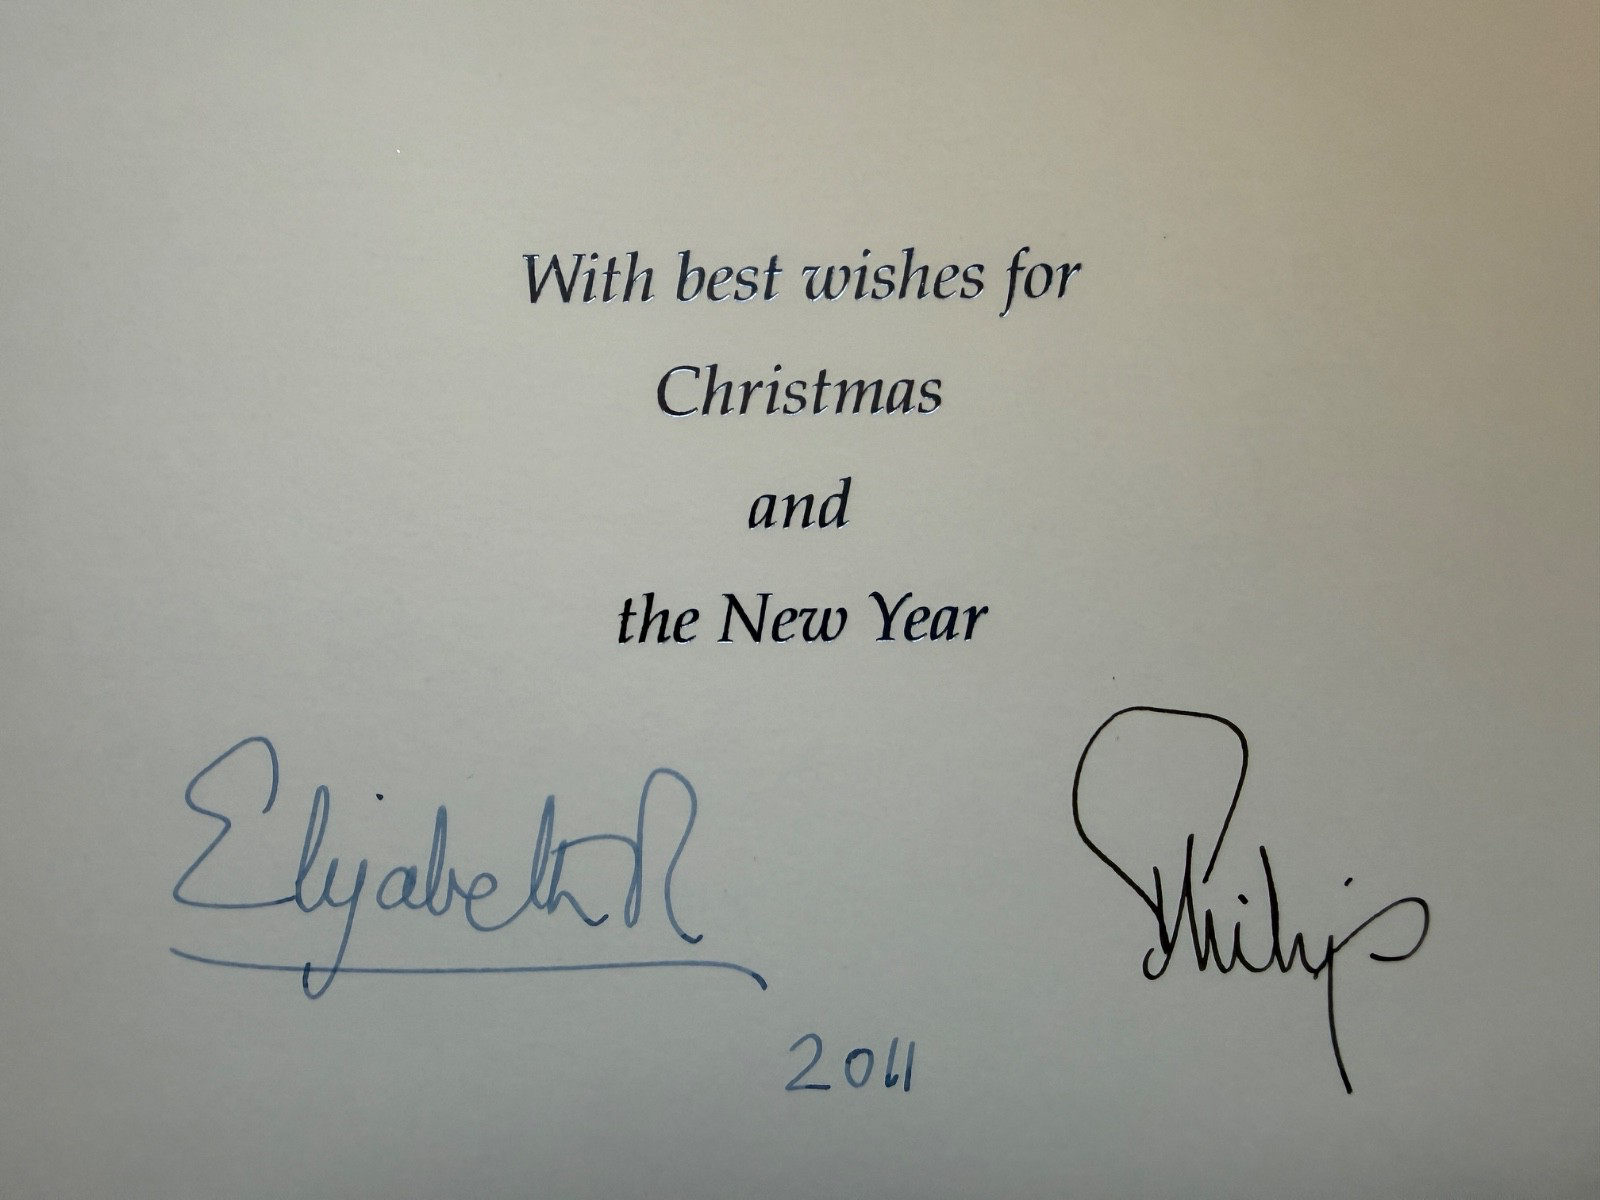 With best wishes for
Christmas
and
the New Year
Elizabeth R
Philip
2011